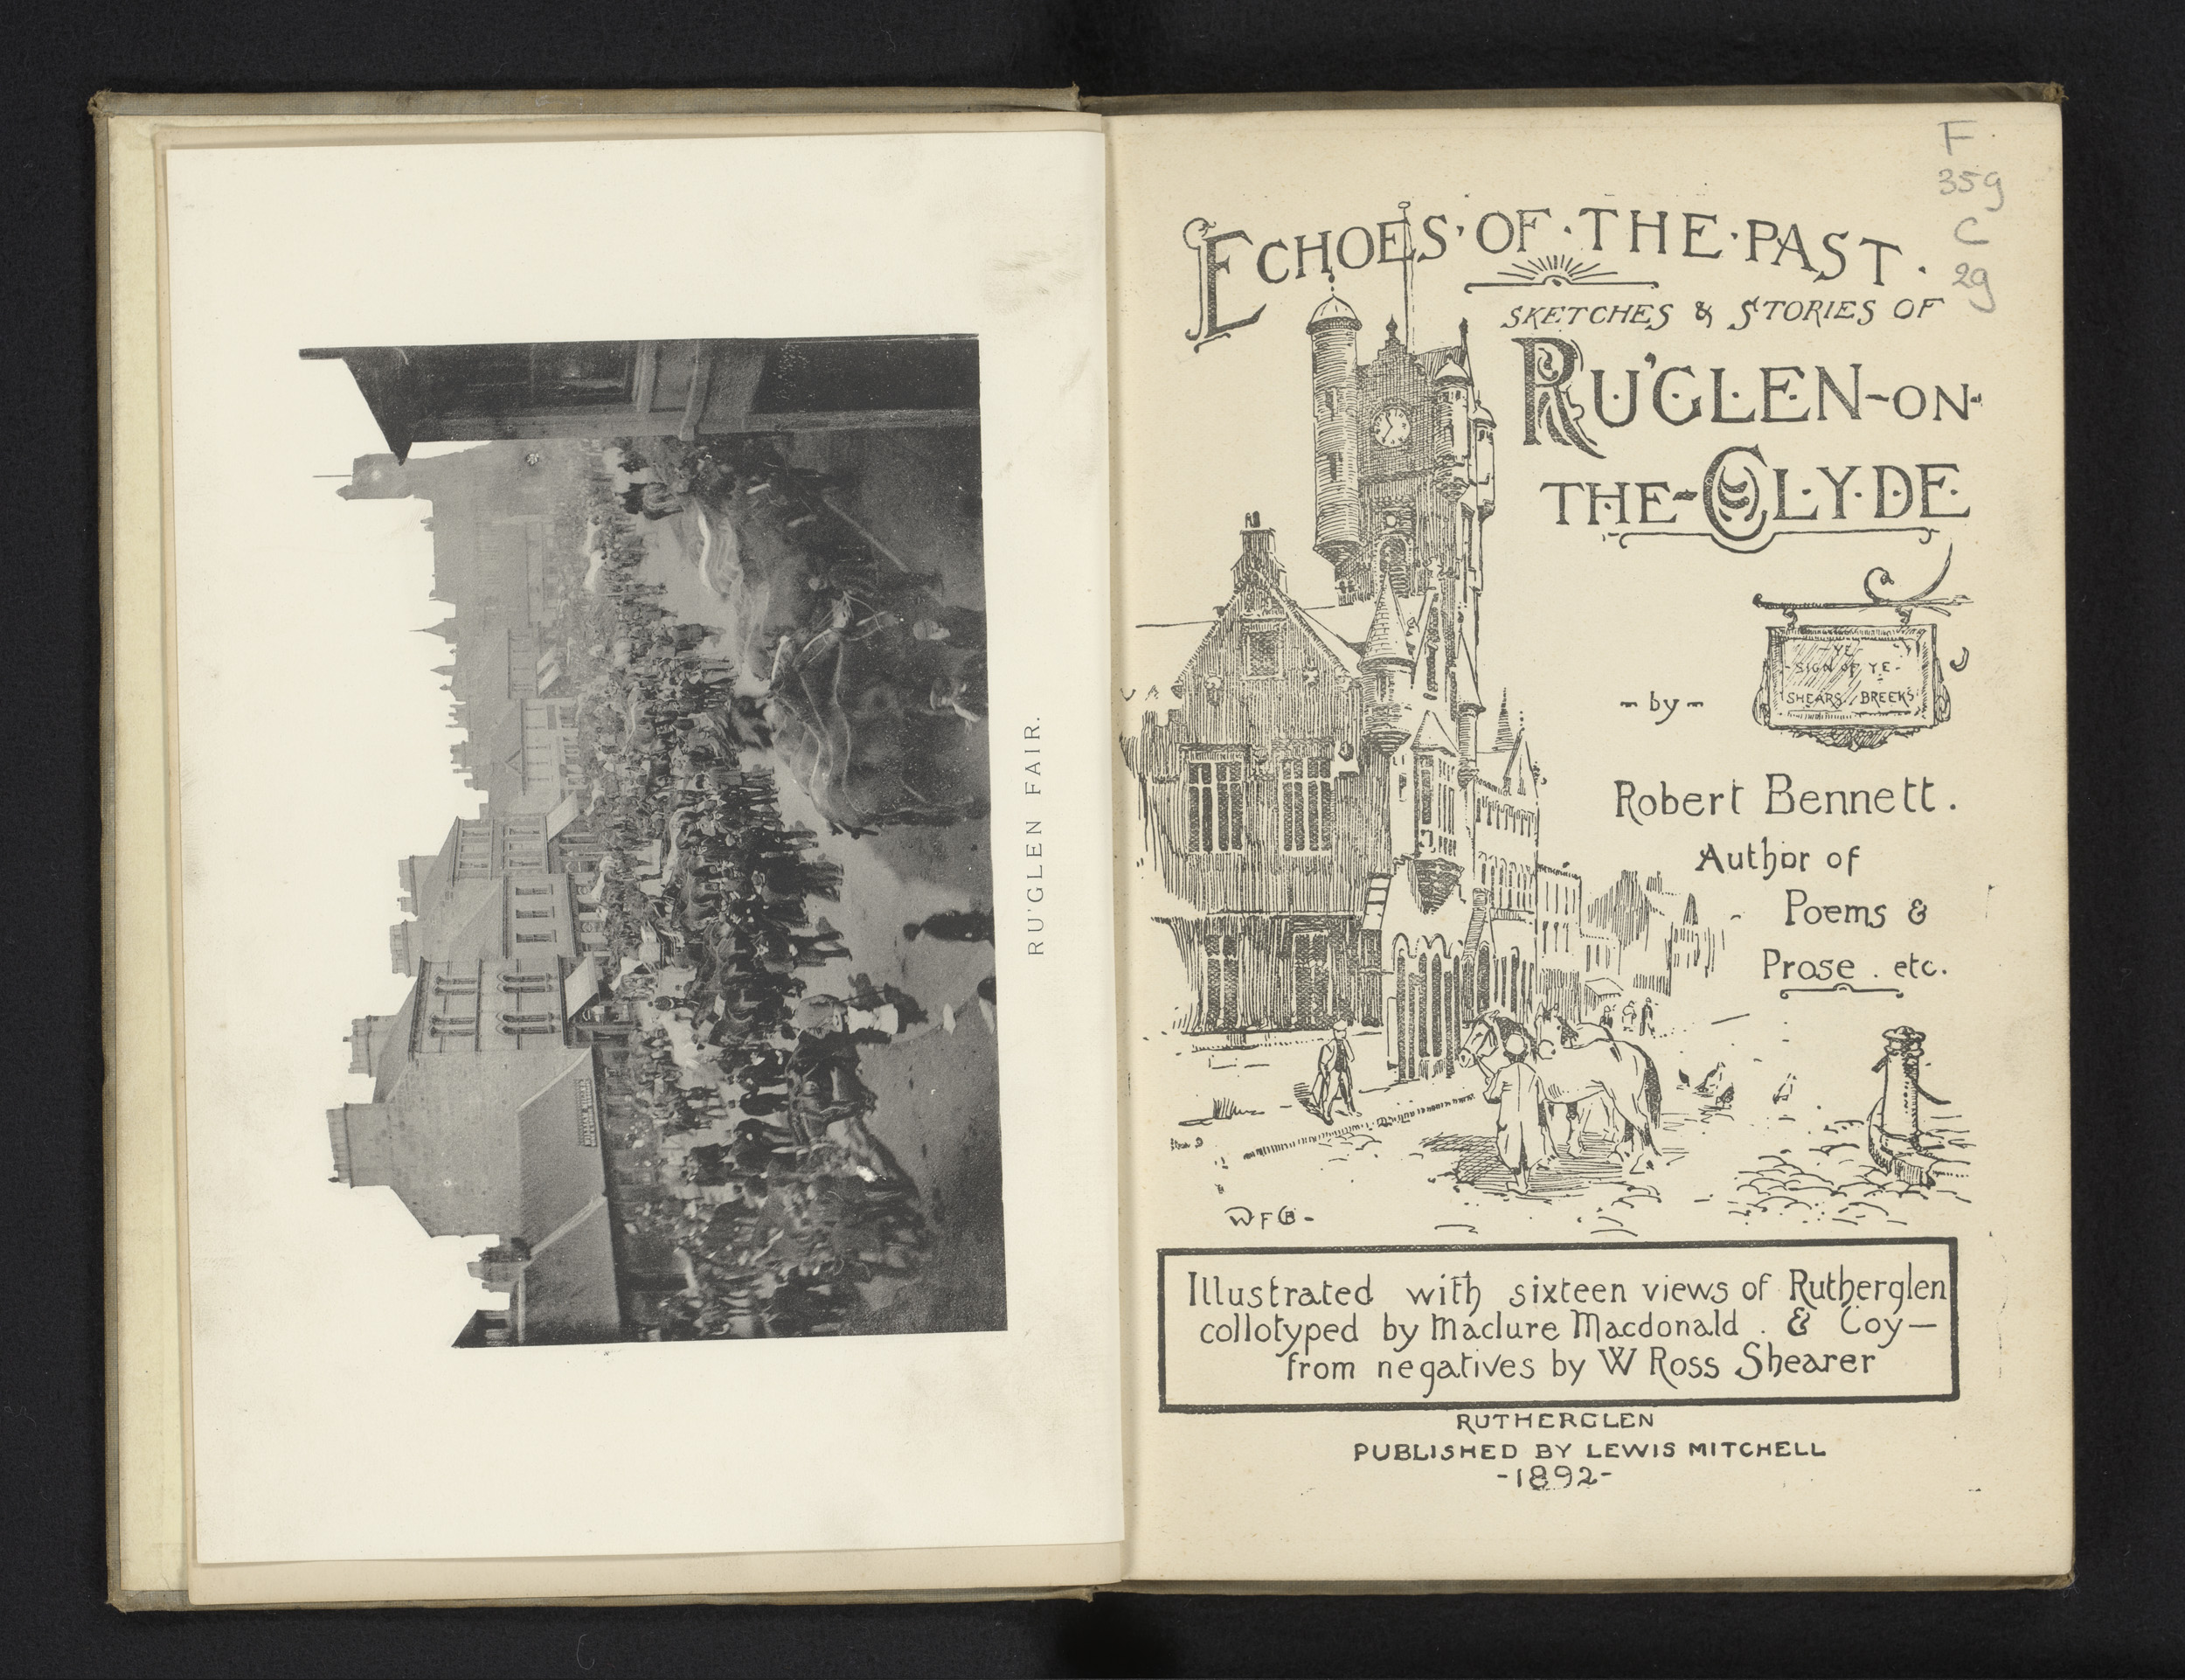 RU'GLEN FAIR.
F
35g
C
29
ECHOES·OF·THE·PAST.
SKETCHES & STORIES OF
RU'GLEN-ON-
THE-CLYDE
YE
SIGN OF YE
SHEARS BREEKS
-by-
Robert Bennett.
Author of
Poems &
Prose. etc.
WFB-
Illustrated with sixteen views of Rutherglen
collotyped by Maclure Macdonald. & Coy—
from negatives by W Ross Shearer
RUTHERGLEN
PUBLISHED BY LEWIS MITCHELL
-1892-